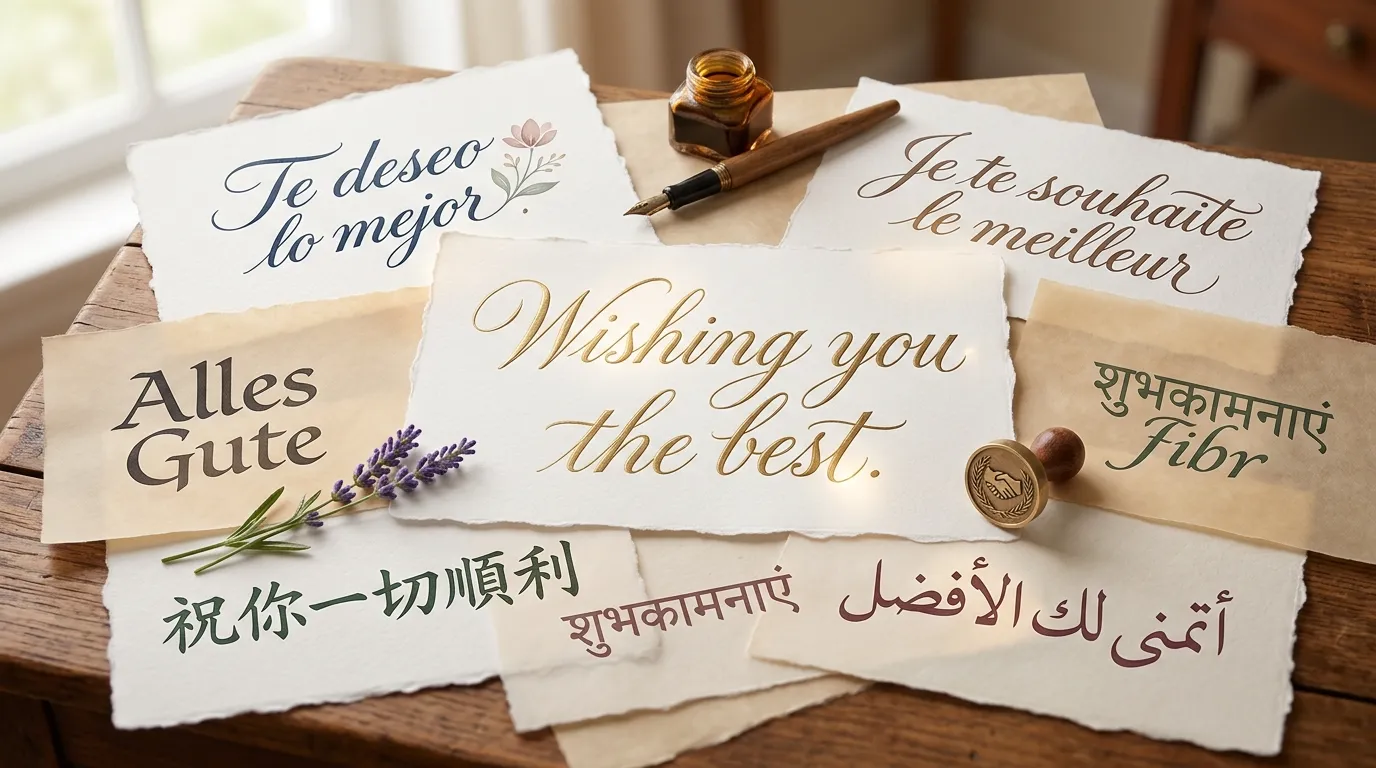 Te deseo
lo mejor.
Je te souhaite
le meilleur
Wishing you
the best.
Alles
Gute
शुभकामनाएं
Fibr
祝你一切順利
शुभकामनाएं
أتمنى لك الأفضل